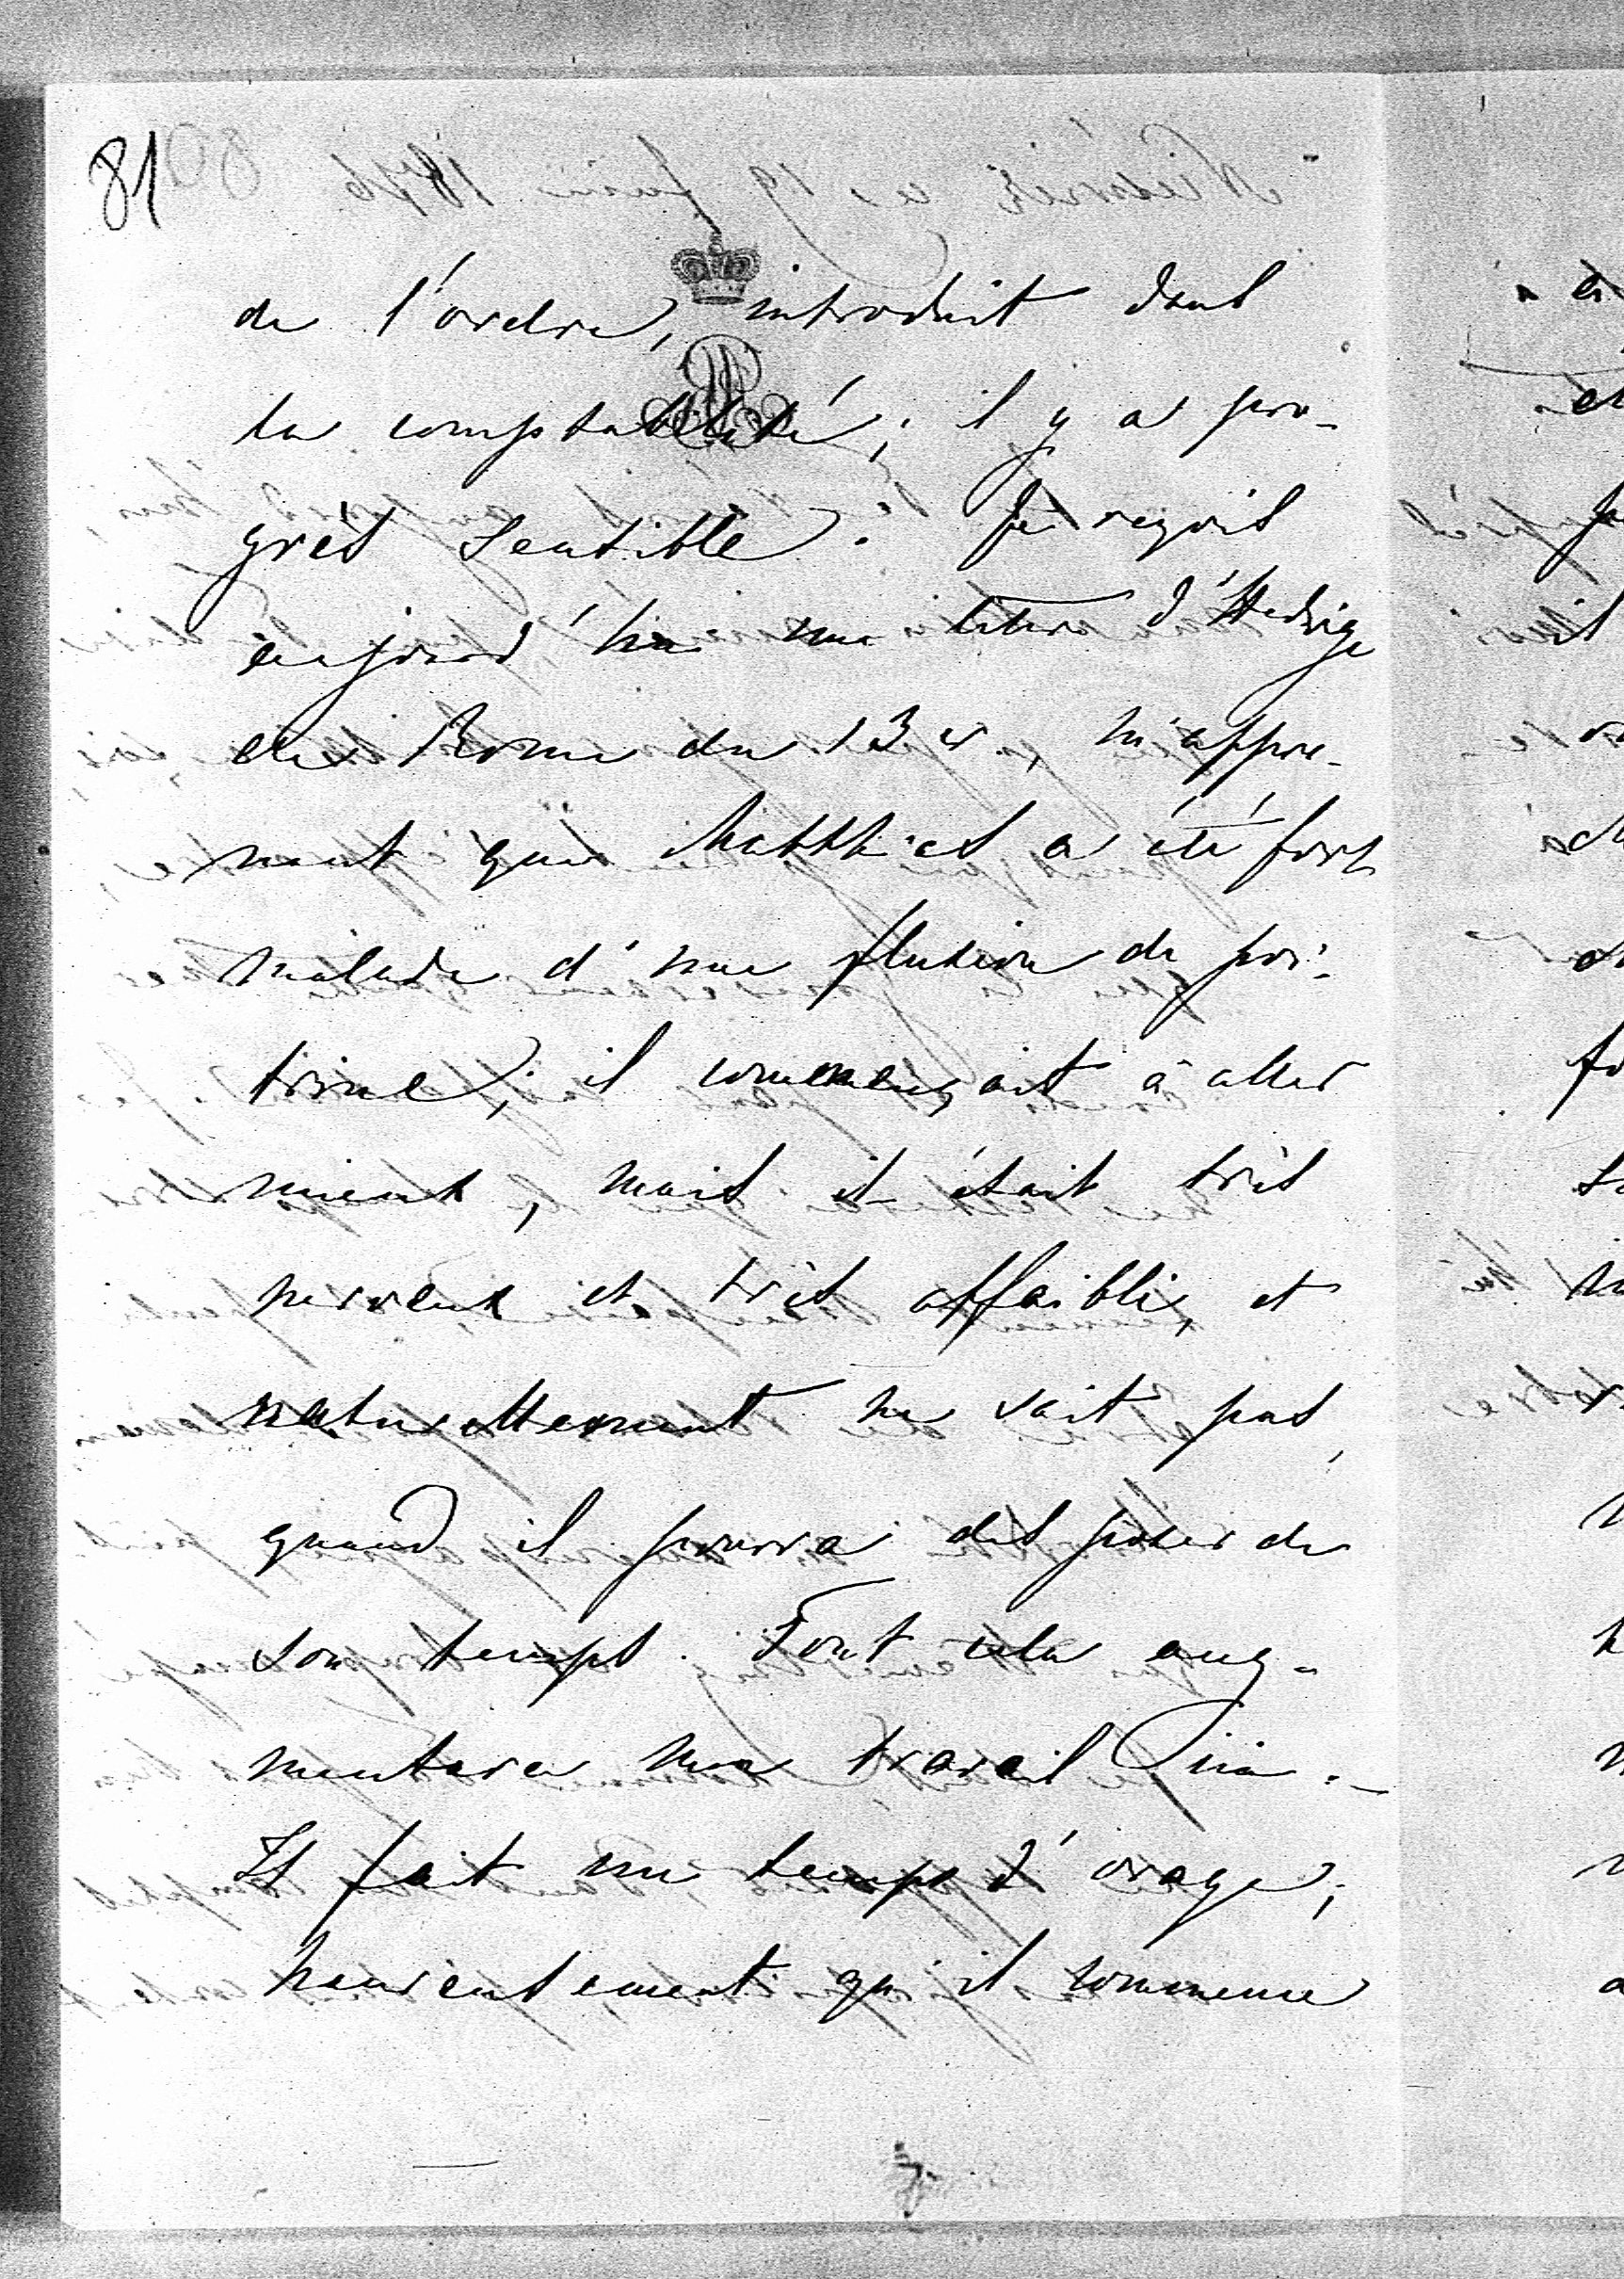 81
de l'ordre, introduit dans
la comptabilité; il y a pro-
grès sensible. Je reçois
aujourd'hui une lettre d'Hedwige
de Rome du 13 cr, m'appre-
nant que Matthies a été fort
malade d'une fluxion de poi-
trine; il commençait à aller
mieux, mais il était très
nerveux et très affaibli, et
naturellement ne sait pas,
quand il pourra disposer de
son temps. Tout cela aug-
mentera mon travail
Il fait un temps d'orage;
heureusement qu'il commence